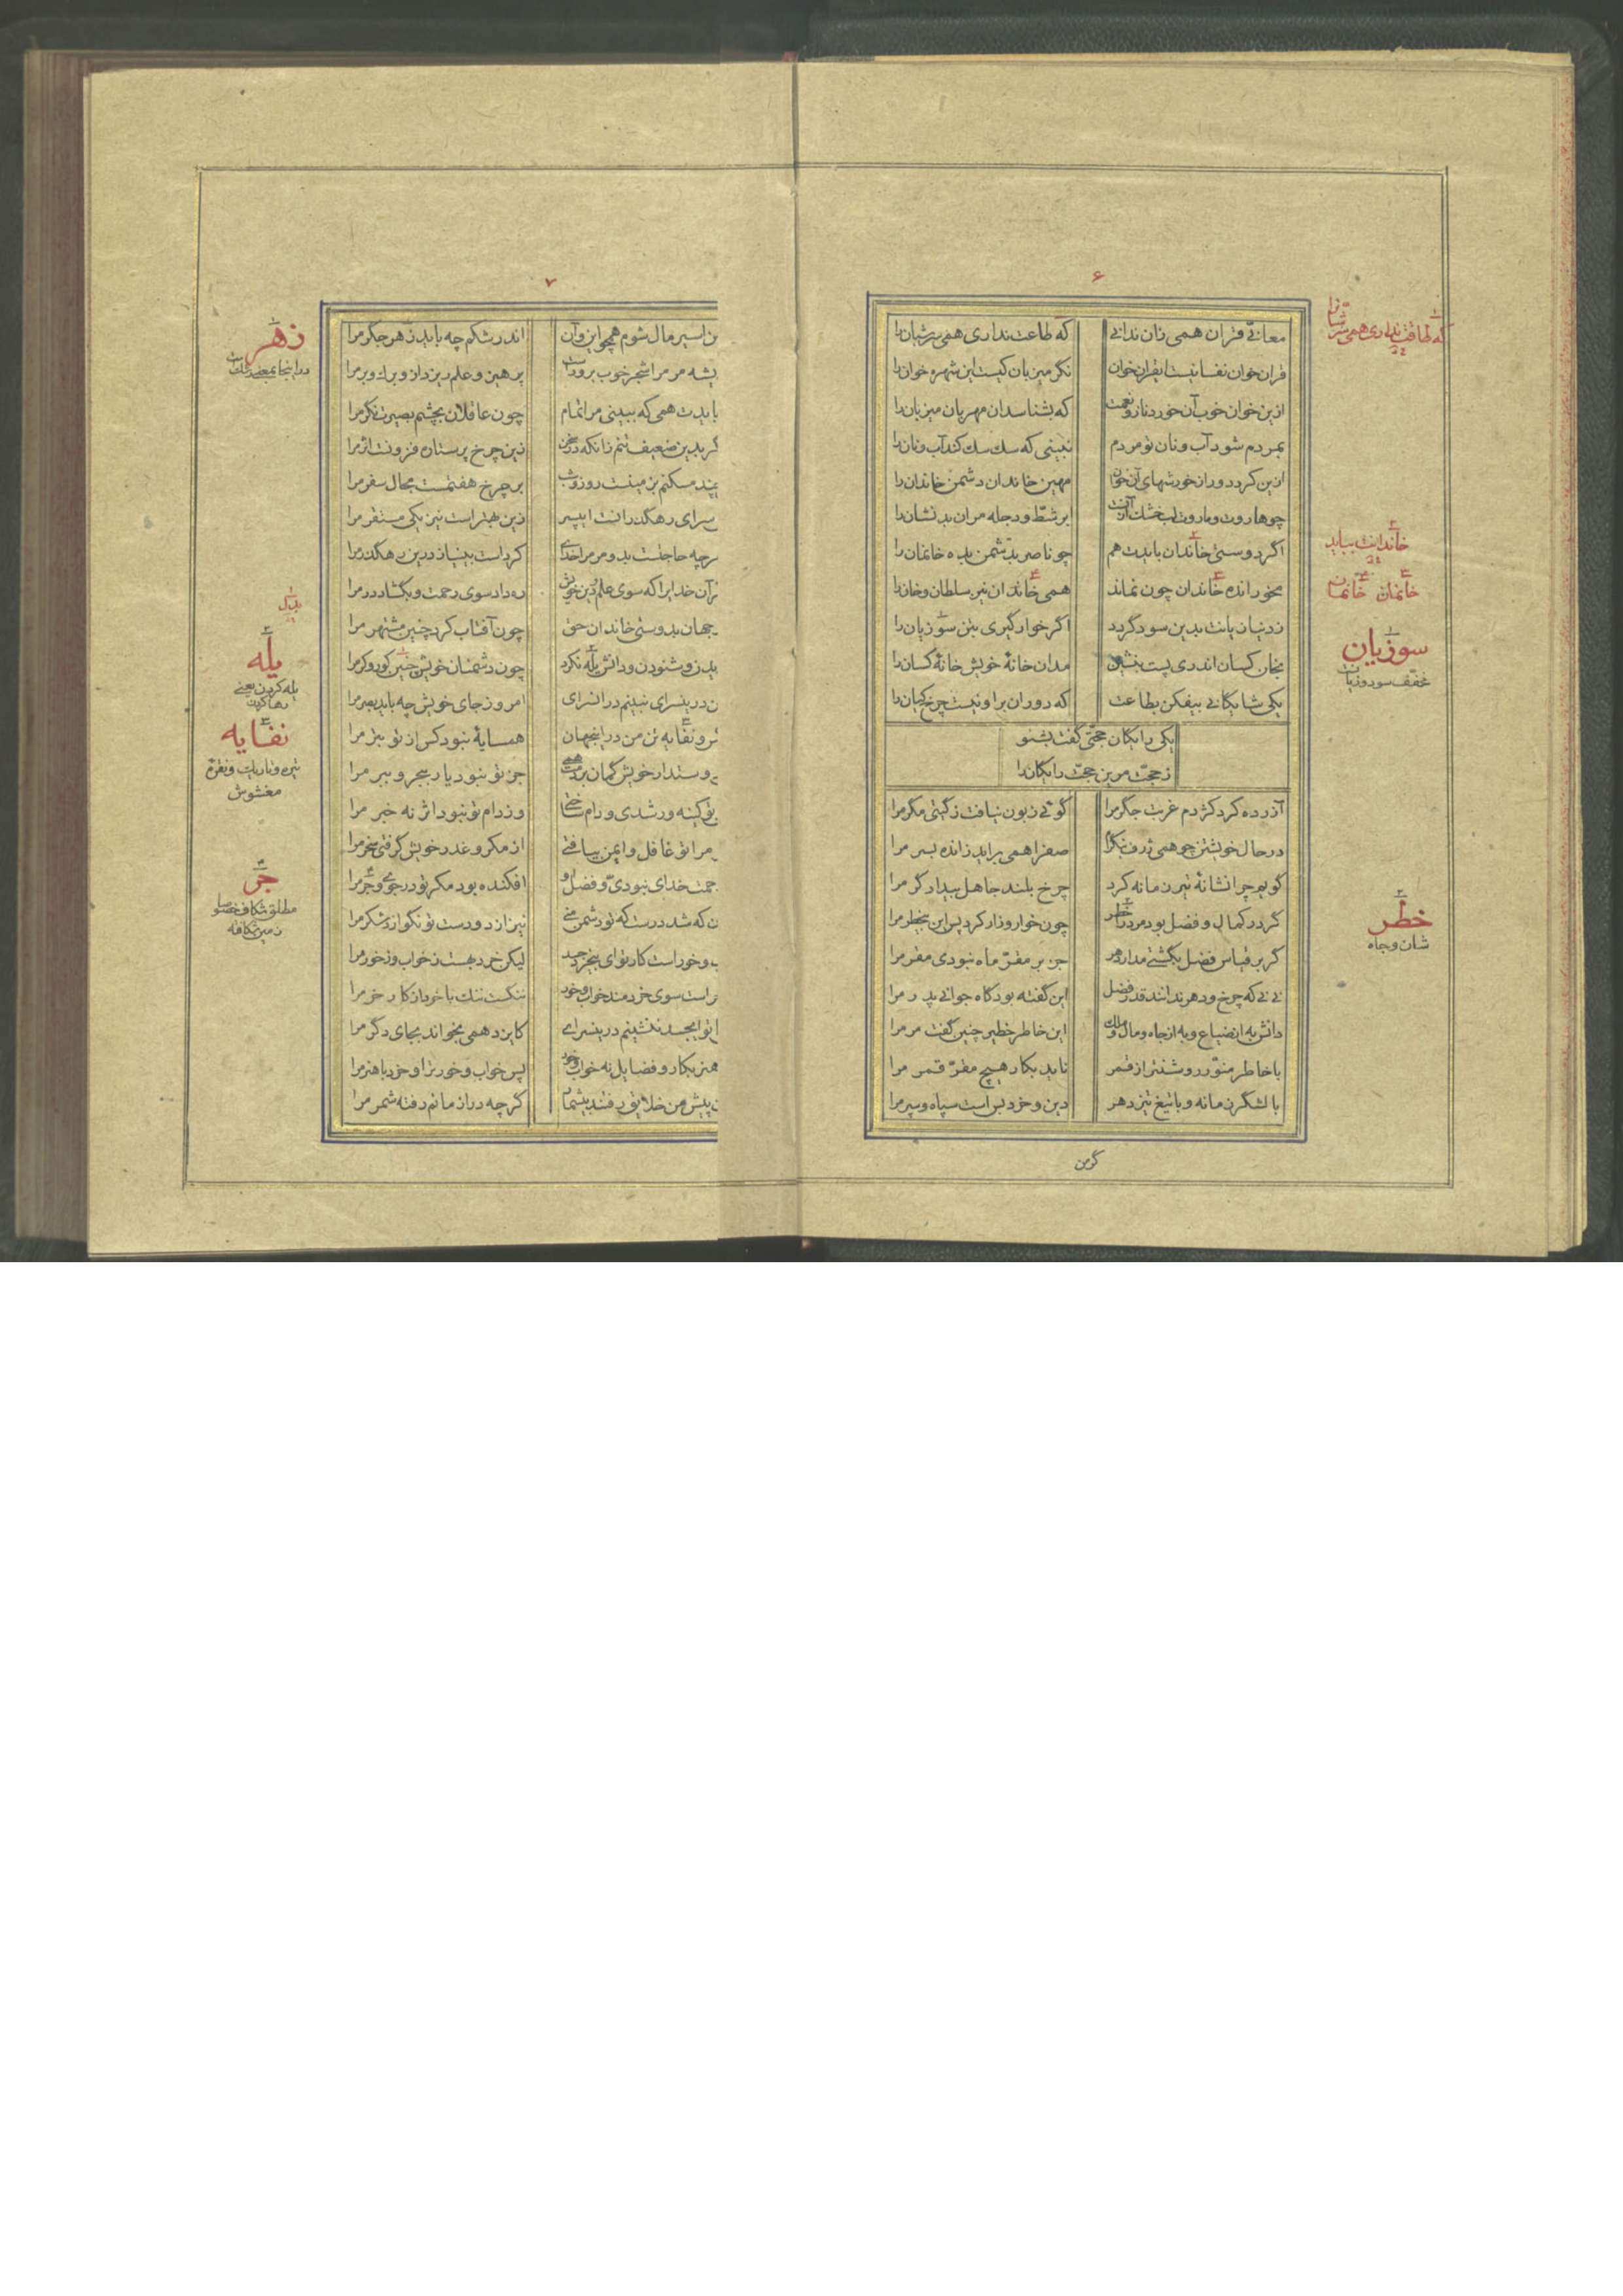 ۶
معانیّ قران همی زان ندانی که طاعت نداری همی سرشبان را
قران خوان نفسانیت ایقران خوان نگر میزبان کیست این شهره خوان را
ازین خوان خوب آن خورد نان و نعمت که بشناسد آن مهربان میزبان را
بمردم شود آب و نان تو مردم نبینی که سك سك کند آب و نان را
ازین کرد دور از خورشهای آن خوان مهین خاندان دشمن خاندان را
چو هاروت و ماروت لب خشك آنست ابر شطّ و دجله مر ان بد نشان را
اگر دوستیّ خاندان بایدت هم چو ناصر بدشمن بده خانمان را
مخور انده خاندان چون نماند همی خاندان نیز سلطان و خان را
ز دنیا زیانت بدین سود گردد اگر خوار گیری بتن سوزیان را
بخان کسان اندری پست بنشین مدان خانهٔ خویش خانهٔ کسان را
یکی شایگانی بیفکن بطاعت که دوران برا و نیست چرخ کیان را
یکی رایگان حجّتی گفت بشنو
ز حجّت مر ین حجّت رایگان را
آزرده کرد کژدم غربت جگر مرا گوئی زبون نیافت ز گیتی مگر مرا
در حال خویشتن چو همی ژرف بنگرم صفرا همی براید ز انده بسر مرا
گویم چرا نشانهٔ تیر زمانه کرد چرخ بلند جاهل بیدادگر مرا
گر در کمال و فضل بود مرد را خطر چون خوار و زار کرد پس این بیخطر مرا
گر بر قیاس فضل بگشتی مدار دهر جز بر مقرّ ماه نبودی مقر مرا
نی نی که چرخ و دهر ندانند قدر فضل این گفته بود گاه جوانی پدر مرا
دانش به از ضیاع و به از جاه و مال و ملك این خاطر خطیر چنین گفت مر مرا
با خاطر منوّر روشنتر از قمر ناید بکار هیچ مقرّ قمر مرا
با لشگر زمانه و با تیغ تیز دهر دین و خرد بس است سپاه و سپر مرا
گر من
که طاقت نداری همی سر شبان را
خاندانت بباید
خانمان خانمان
سوزیان
مخفّف سود و زیان
خطر
شان و جاه
۷
ن اسیر مال شوم همچو این و آن اندر شکم چه باید زهر جگر مرا
یشه مر مرا شجر خوب برورست پرهیز و علم ریزد ازو برك و بر مرا
بایدت همی که ببینی مرا تمام چون عاقلان بچشم بصیرت نگر مرا
گر بدین ضعیف تنم زانکه در سخن زین چرخ پر ستاره فزونست اثر مرا
چند مسکنم بزمینست روز و شب بر چرخ هفتمست مجال سفر مرا
سرای رهگذرانست ای پسر زین بهتر است نیز یکی مستقر مرا
رچه حاجتست بدو مر مرا خدای کرد است بینیاز درین رهگذر مرا
رآن خدایرا که سوی علم و دین خویش ره داد سوی رحمت و بگشاد در مرا
جهان بدوستی خاندان حق چون آفتاب کرد چنین مشتهر مرا
دیدن و شنودن و دانش یله نکرد چون دشمنان خویش چنین کور و کر مرا
ن درینسرای نبینم در انسرای امروز جای خویش چه باید بصر مرا
رو نفایه تن من در اینجهان همسایهٔ نبود کس از تو بتر مرا
دوستدار خویش گمان بردمت همی جز تو نبود یار ببحر و ببر مرا
تو کینه ور شدی و دام ساختی وز دام تو نبود اثر نه خبر مرا
مرا تو غافل و ایمن بیافتی از مکر و غدر خویش گرفتی سخر مرا
حمت خدای نبودیّ و فضل او افکنده بود مکر تو در جوی و جر مرا
ن که شد درست که تو دشمن منی نیز از دو دست تو نگوارد شکر مرا
ب و خور است کار تو ای بیخرد جسد لیکن خرد بهست ز خواب و ز خور مرا
ر است سوی خردمند خواب و خور ننگست ننك با خرد از کار خر مرا
با تو ایجسد ننشینم درینسرای کایزد همی بخواند بجای دگر مرا
هنر بکار و فضایل نه خواب و خور پس خواب و خور ترا و خرد با هنر مرا
پیش من خلایق رفتند بیشمار گرچه دراز مانم رفته شمر مرا
زهر
در اینجا بمعنی
بدل
یله
یله کردن یعنی
رها کردن
نفایه
تیره و تاریك و نقرهٔ
مغشوش
جر
مطلق شکاف خصوصا
زمین شکافته